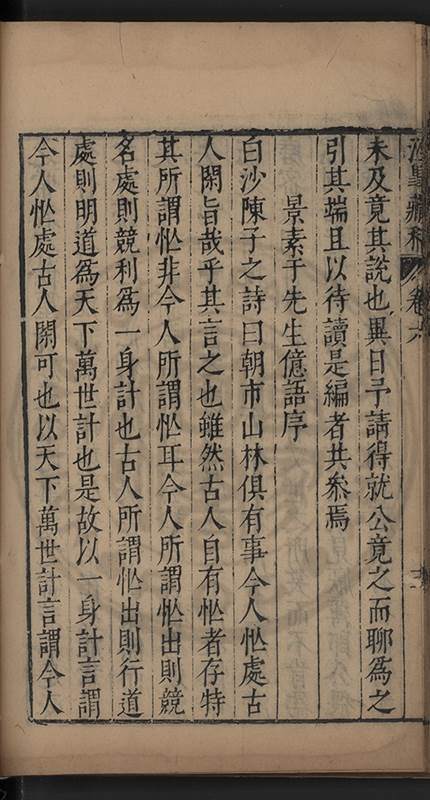 涇臯藏稿 卷六
未及竟其說也異日予請得就公竟之而聊為之
引其端且以待讀是編者共叅焉
景素于先生億語序
白沙陳子之詩曰朝市山林俱有事今人忙處古
人閑旨哉乎其言之也雖然古人自有忙者存特
其所謂忙非今人所謂忙耳今人所謂忙出則競
名處則競利爲一身計也古人所謂忙出則行道
處則明道爲天下萬世計也是故以一身計言謂
今人忙處古人閑可也以天下萬世計言謂今人